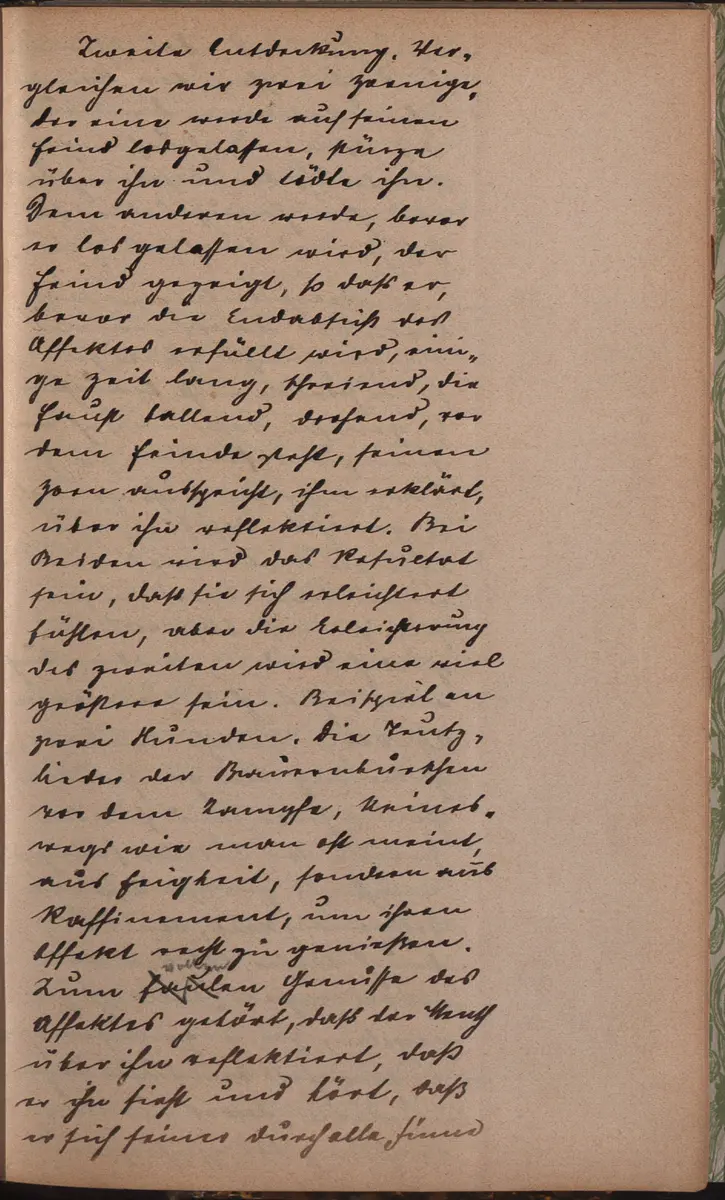 Zweite Entdeckung. Ver-
gleichen wir zwei zornige,
der eine werde auf seinen
Feind losgelassen, stürze
über ihn und tödte ihn.
Dem anderen werde, bevor
er losgelassen wird, der
Feind gezeigt, so daß er,
bevor die Endabsicht des
Affektes erfüllt wird, eini-
ge Zeit lang, schreiend, die
Faust ballend, drohend, vor
dem Feinde steht, seinen
Zorn ausspricht, ihm erklärt,
über ihn reflektiert. Bei
Beiden wird das Resultat
sein, daß sie sich erleichtert
fühlen, aber die Erleichterung
des zweiten wird eine viel
größere sein. Beispiel an
zwei Hunden. Die Trutz-
lieder der Bauernburschen
vor dem Kampfe, keines-
wegs wie man oft meint,
aus Feigheit, sondern aus
Raffinement, um ihren
Affekt recht zu genießen.
Zum vollen Genusse des
Affektes gehört, daß der Mensch
über ihn reflektiert, daß
er ihn sieht und hört, daß
er sich seiner durch alle Sinne